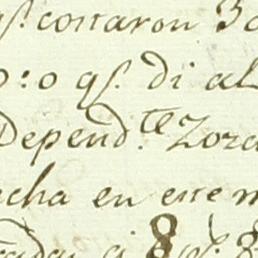 qs. costaron 30
0:0 qs. di al
Depend.te Zora
echa en este m
a 8 ps. 8